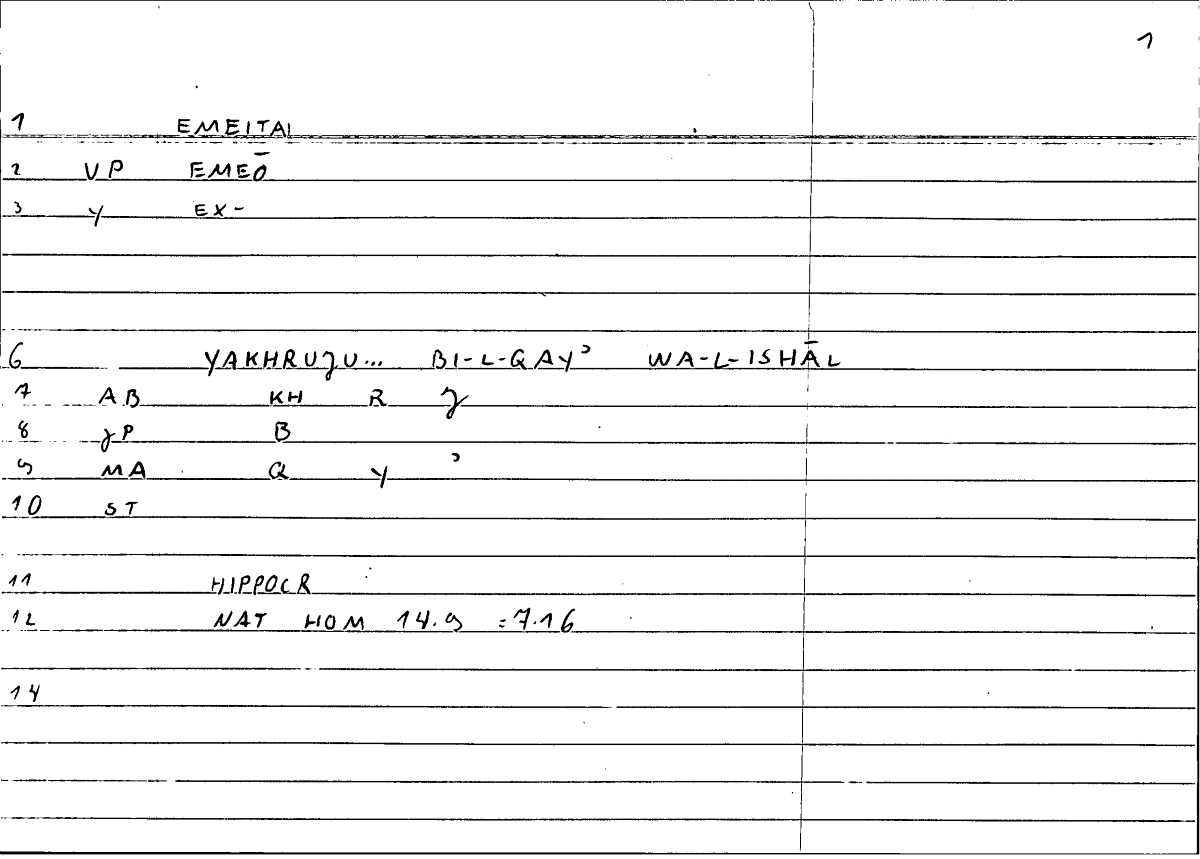 1
1 EMEITAI
2 VP EMEŌ
3 Y EX-
6 YAKHRUJU... BI-L-QAYʾ WA-L-ISHĀL
7 AB KH R J
8 JP B
9 MA Q Y ʾ
10 ST
11 HIPPOCR
12 NAT HOM 14.9 =7.16
14